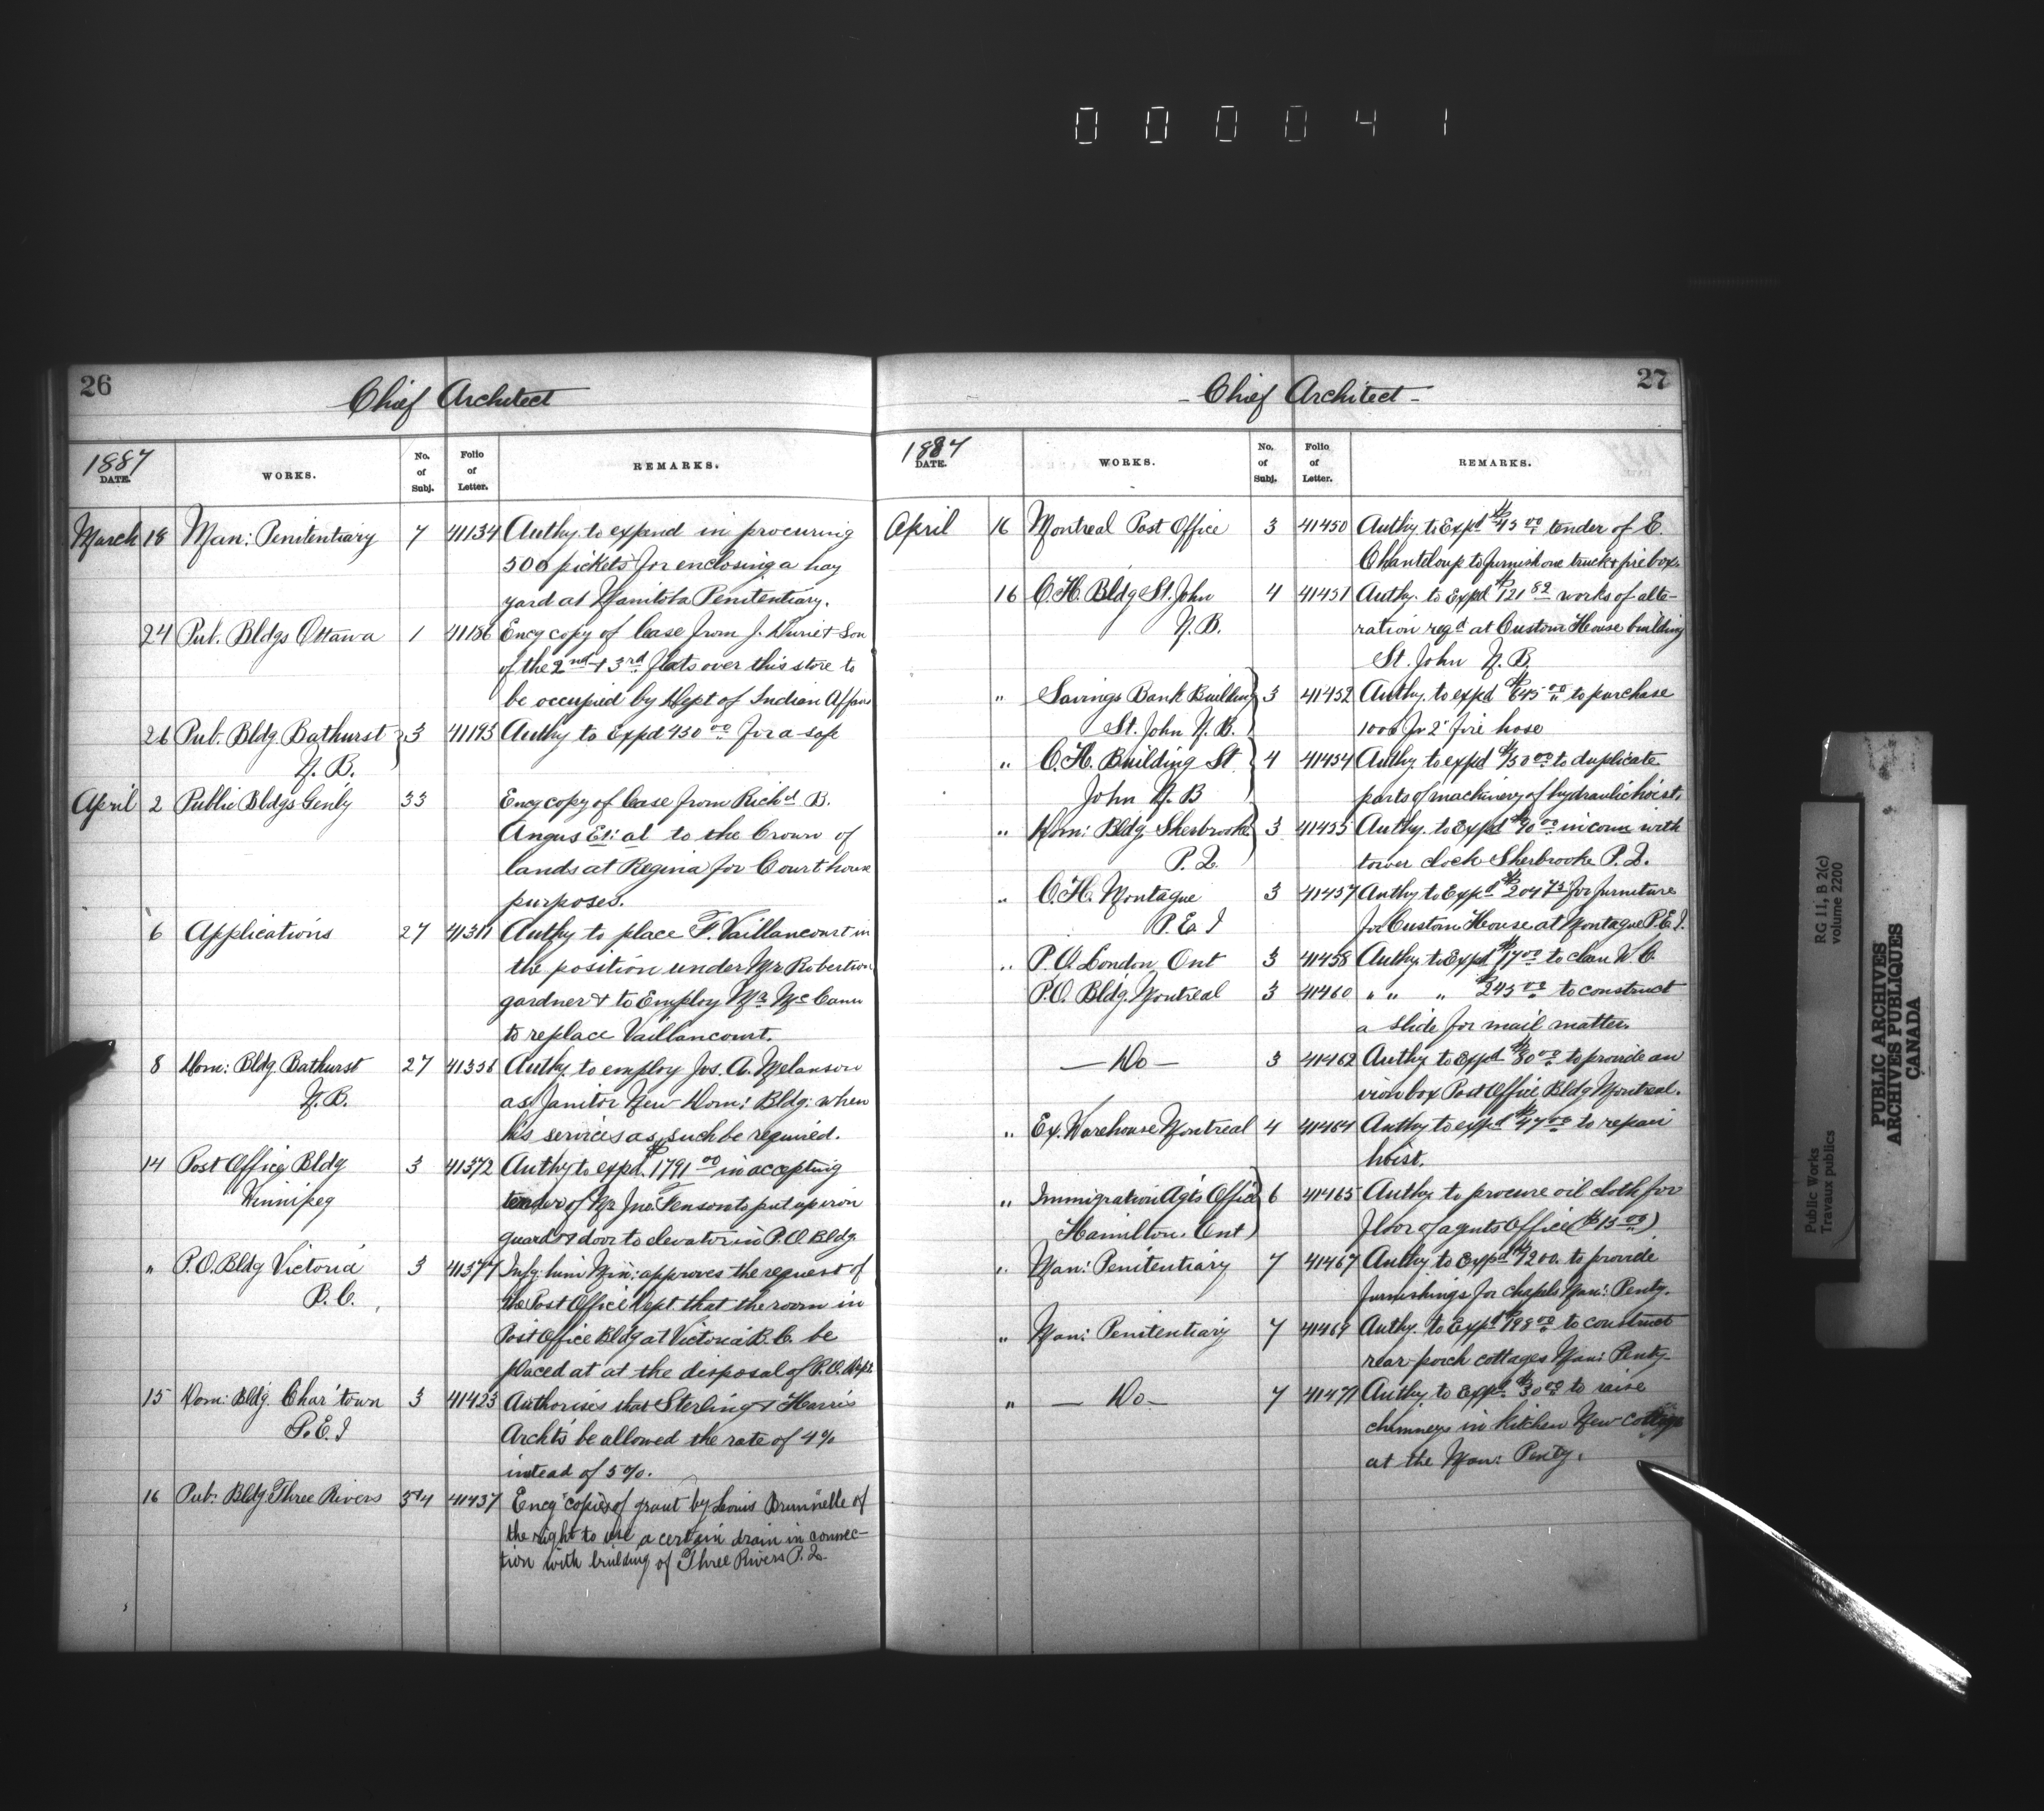 0 0 0 0 4 1
26
Chief Architect
1887
DATE.
WORKS.
No. of Subj.
Folio of Letter.
REMARKS.
March 18 Man: Penitentiary 7 41134 Authy to expend in procuring
500 pickets for enclosing a hay
yard at Manitoba Penitentiary.
24 Pub. Bldgs Ottawa 1 41186 Encg copy of lease from J. Durie & Son
of the 2nd & 3rd flats over this store to
be occupied by Dept of Indian Affairs
26 Pub. Bldg. Bathurst 3 41195 Authy to Expd 450 00 for a safe
N. B.
April 2 Public Bldgs Genly 33 Encg copy of lease from Richd B.
Angus Et: al to the Crown of
lands at Regina for Court house
purposes.
6 Applications 27 41311 Authy to place F. Vaillancourt in
the position under Mr Robertson
gardner & to Employ Mr McCann
to replace Vaillancourt.
8 Dom: Bldg. Bathurst 27 41336 Authy. to employ Jos. A. Melanson
N.B. as Janitor New Dom: Bldg: when
his services as such be required.
14 Post Office Bldg 3 41372 Authy to expd. $1791 00 in accepting
Winnipeg tender of Mr Jno. Fenson to put up iron
guard & door to elevator in P.O. Bldg.
" P.O. Bldg Victoria 3 41377 Infg him Min: approves the request of
B.C. the Post Office Dept. that the room in
Post Office Bldg at Victoria B.C. be
placed at at the disposal of P.O. Dept.
15 Dom: Bldg. Char'town 3 41423 Authorises that Sterling & Harris
P.E.I Archts be allowed the rate of 4%
instead of 5%.
16 Pub: Bldg. Three Rivers 3+4 41437 Encg copies of grant by Louis Brunnelle of
the right to use a certain drain in connec-
tion with building of Three Rivers P.Q.
27
- Chief Architect -
1887
DATE.
WORKS.
No. of Subj.
Folio of Letter.
REMARKS.
April 16 Montreal Post Office 3 41450 Authy. to Expd $45 00 tender of E.
Chanteloup to furnish one truck & fire box.
16 C.H. Bldg St. John 4 41451 Authy. to Expd $121 82 works of alte-
N.B. ration regd at Custom House building
St. John N.B.
" Savings Bank Building 3 41452 Authy. to expd $645 00 to purchase
St. John N.B. 1000 ft 2" fire hose
" C.H. Building St 4 41454 Authy. to expd $150 00 to duplicate
John N.B parts of machinery of hydraulic hoist.
" Dom: Bldg. Sherbrooke 3 41455 Authy. to Expd $90 00 in conn with
P.Q. tower clock Sherbrooke P.Q.
" C.H. Montague 3 41457 Authy to Expd $204 75 for furniture
P.E.I for Custom House at Montague P.E.I.
" P.O. London Ont 3 41458 Authy. to Expd $17 00 to clean W.C.
P.O. Bldg. Montreal 3 41460 " " " $245 00 to construct
a slide for mail matter.
— Do — 3 41462 Authy to Expd $80 00 to provide an
iron box Post Office Bldg Montreal.
" Ex. Warehouse Montreal 4 41464 Authy to expd $47 00 to repair
hoist.
" Immigration Agts Office 6 41465 Authy. to procure oil cloth for
Hamilton. Ont floor of agents Office ($15 00)
" Man: Penitentiary 7 41467 Authy to Expd $200. to provide
furnishings for chapls Man: Penty.
" Man: Penitentiary 7 41469 Authy. to Expd $98 00 to construct
rear porch cottages Man: Penty-
" — Do — 7 41471 Authy to Expd $30 00 to raise
chimneys in kitchen New Cottage
at the Man: Penty.
RG 11, B 2(c)
volume 2200
Public Works
Travaux publics
PUBLIC ARCHIVES
ARCHIVES PUBLIQUES
CANADA